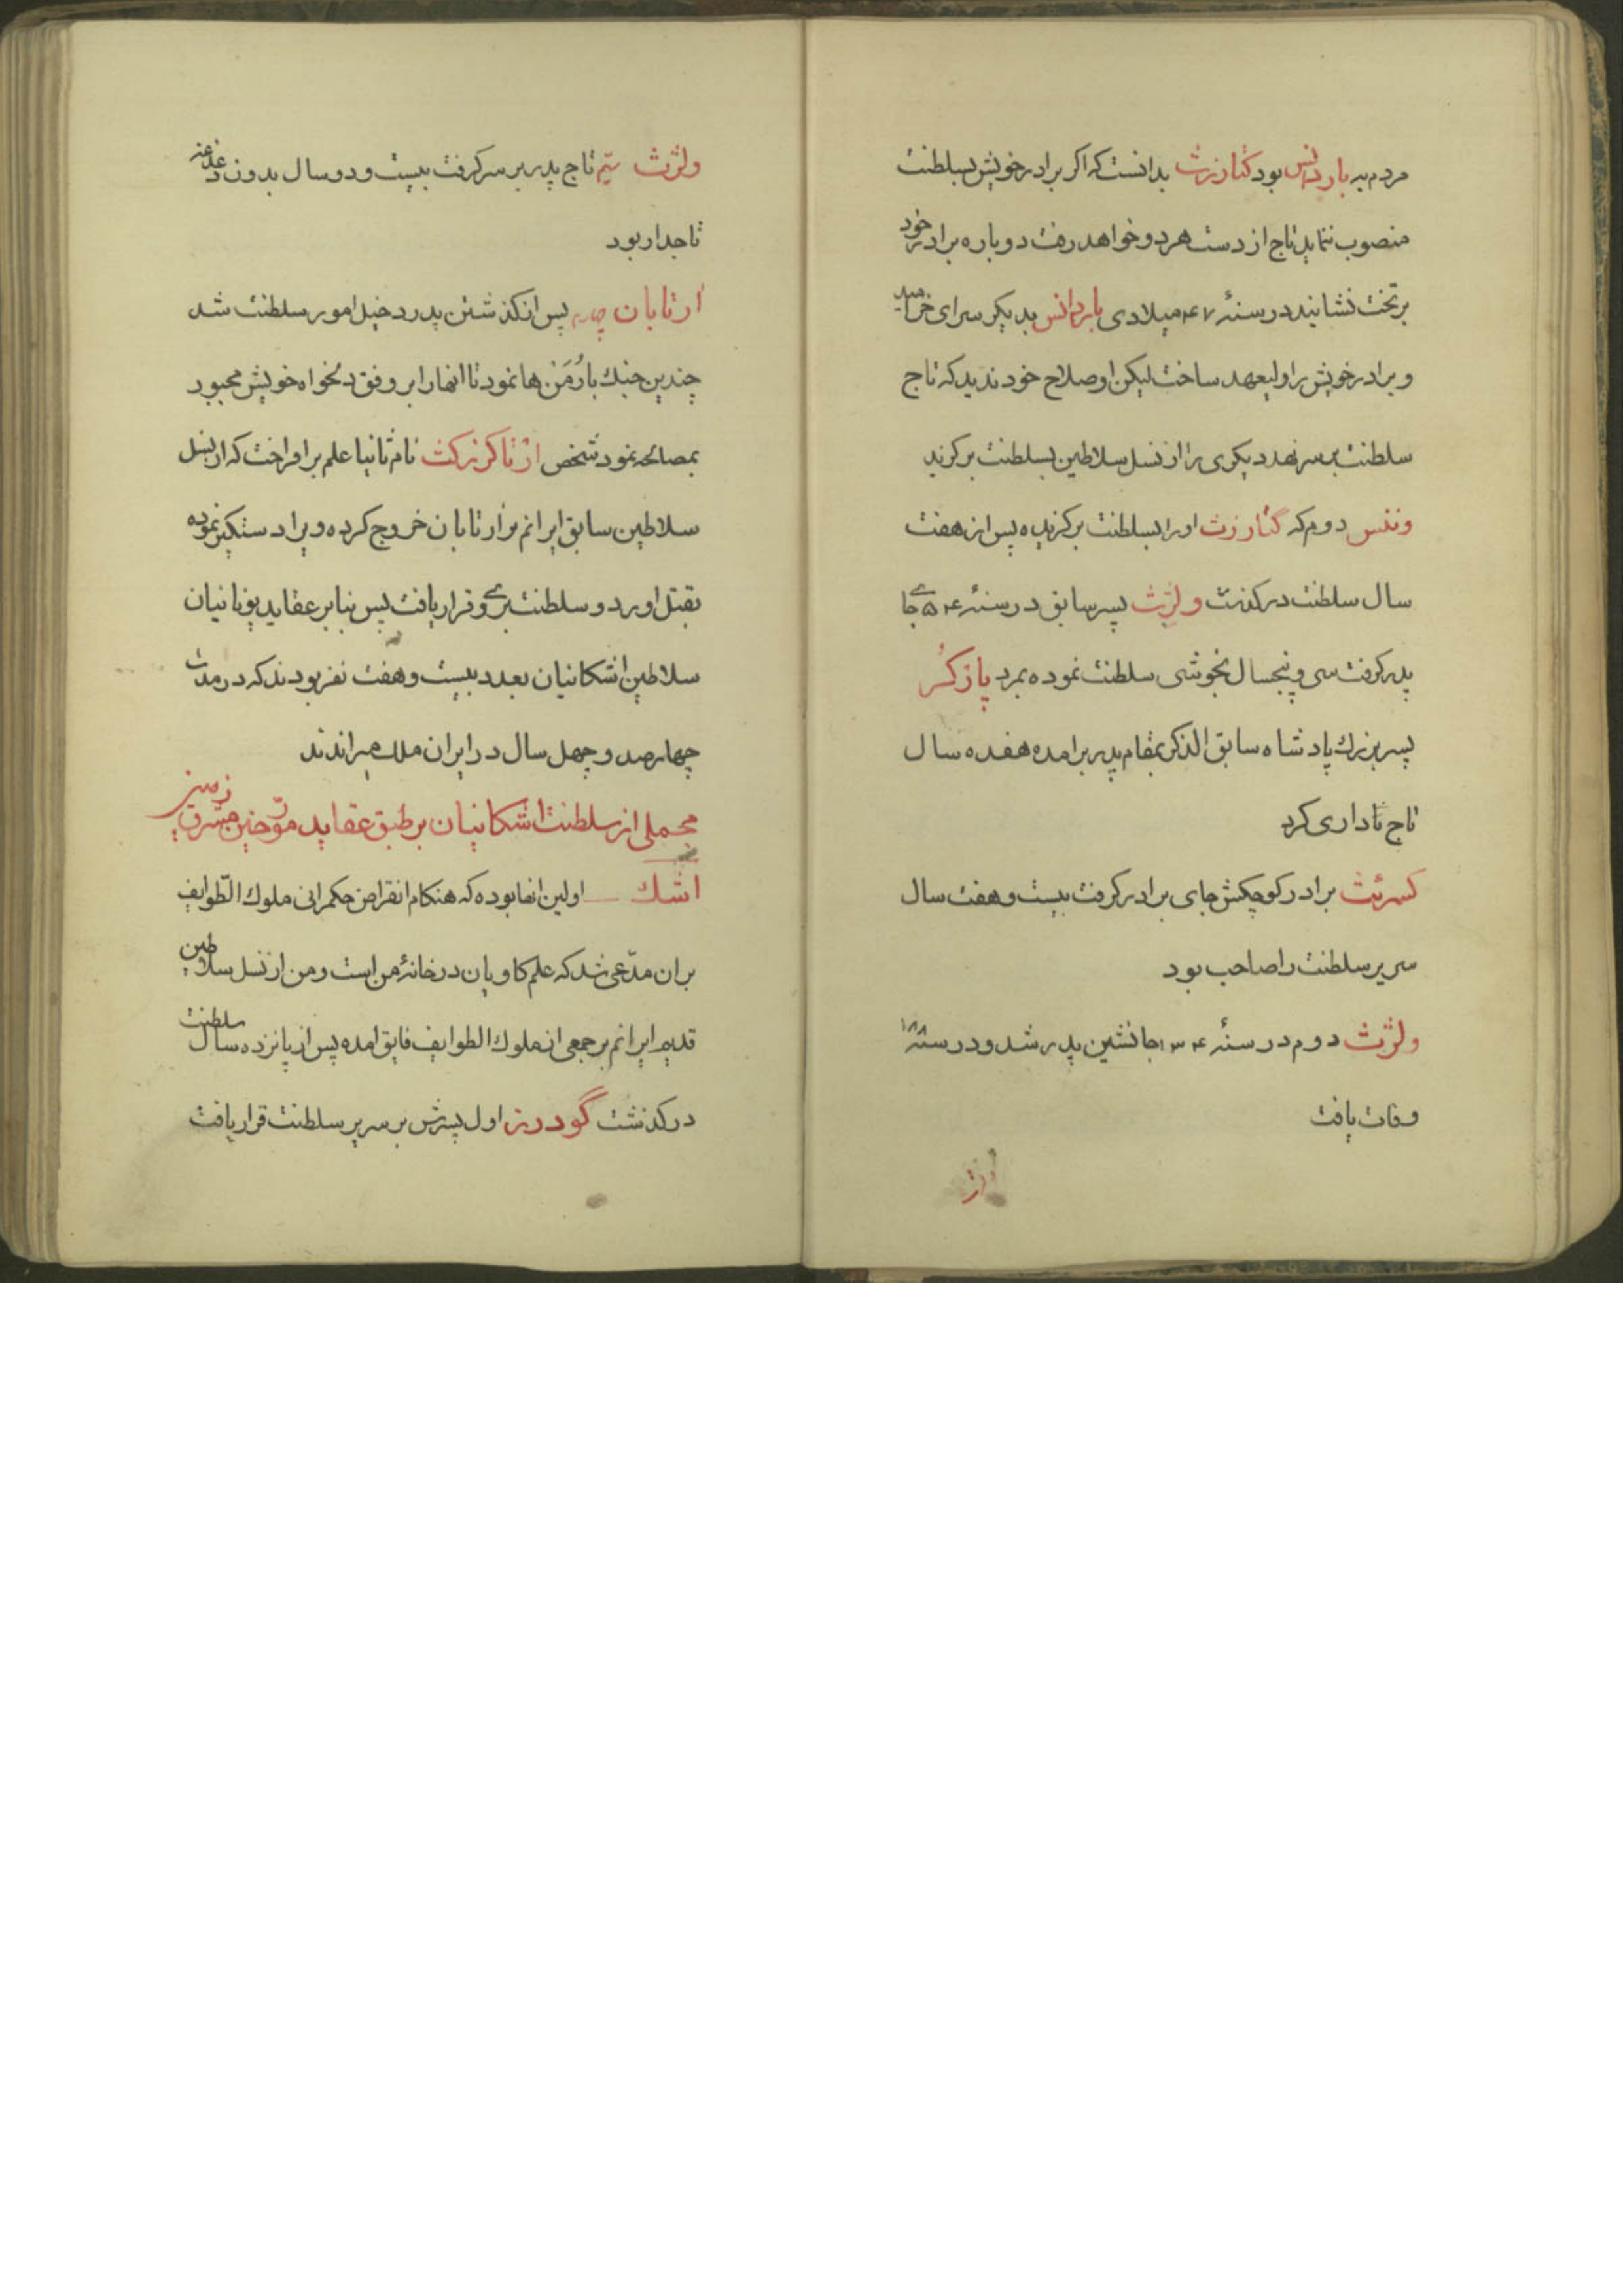 مردم به باردانس بود کتارزث بدانست که اکر برادر خویش بسلطنت
منصوب ننماید تاج از دست هر دو خواهد رفت دوباره برادر خود
بر تخت نشانید در سنهٔ ۴۷ میلادی باردانس بدیکر سرای خرامید
و برادر خویش را ولیعهد ساخت لیکن او صلاح خود ندید که تاج
سلطنت بر سر نهد دیکری را از نسل سلاطین بسلطنت برکزید
وننس دوم که کتارزث او را بسلطنت برکزیده پس از هفت
سال سلطنت درکذشت ولژث پسر سابق در سنهٔ ۵۴ جای
پدر کرفت سی و پنجسال بخوشی سلطنت نموده بمرد پاژکُر
پسر بزرك پادشاه سابق الذکر بمقام پدر برامده هفده سال
تاج تاداری کرد
کسرئث برادر کوچکش جای برادر کرفت بیست و هفت سال
سریر سلطنت را صاحب بود
ولژث دوم در سنهٔ ۱۳۴ جانشین پدر شد و در سنهٔ ۱۸۸
وفات یافت
ولژ
ولژث سیم تاج پدر بر سر کرفت بیست و دو سال بدون دغدغه
تاجدار بود
ارتابان چهارم پس از کذشتن پدر دخیل امور سلطنت شد
چندین جنك با رُمَن ها نمود تا انها را بر وفق دلخواه خویش مجبور
بمصالحه نمود شخص ارتاکزرکث نام ثانیا علم برافراخت که از نسل
سلاطین سابق ایرانم بر ارتابان خروج کرده ویرا دستکیر نموده
بقتل اورد و سلطنت بری و قرار یافت پس بنابر عقاید یونانیان
سلاطین اشکانیان بعدد بیست و هفت نفر بودند که در مدت
چهارصد و چهل سال در ایران ملك میراندند
مجملی از سلطنت اشکانیان بر طبق عقاید مورّخین مشرق زمین
اشك اولین انها بوده که هنکام انقراض حکمرانی ملوك الطّوایف
بران مدّعی شد که علم کاویان در خانهٔ من است و من از نسل سلاطین
قدیم ایرانم بر جمعی از ملوك الطوایف فایق امده پس از پانزده سال سلطنت
درکذشت گودرز اول پسرش بر سریر سلطنت قرار یافت